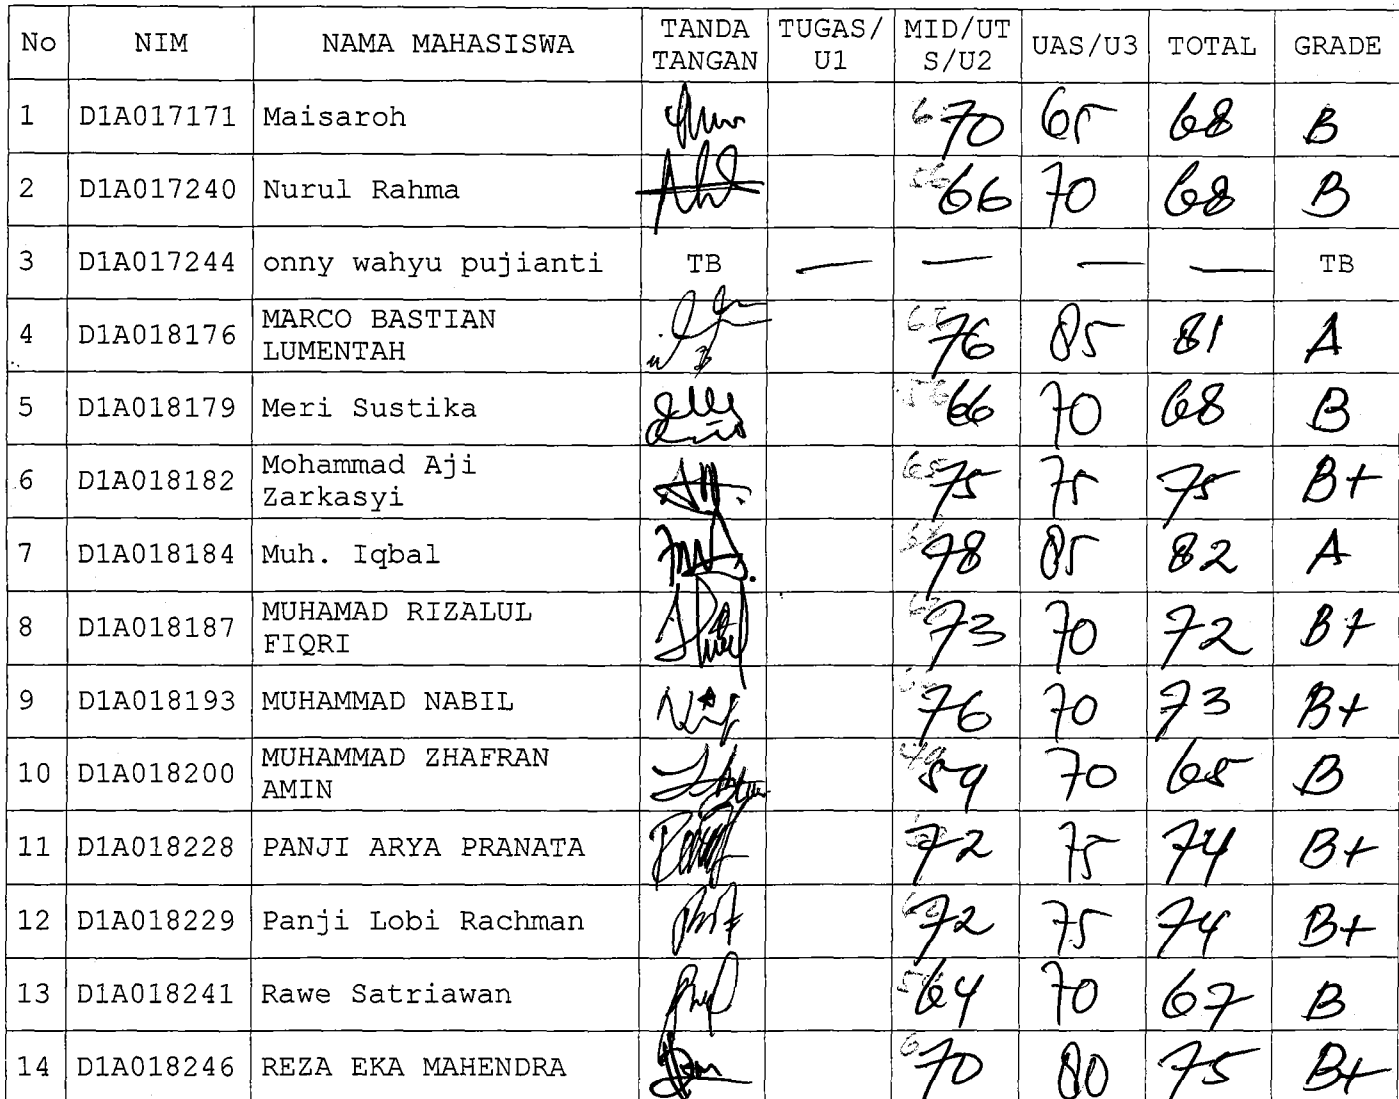 No NIM NAMA MAHASISWA TANDA TANGAN TUGAS/U1 MID/UTS/U2 UAS/U3 TOTAL GRADE
1 D1A017171 Maisaroh 70 65 68 B
2 D1A017240 Nurul Rahma 66 70 68 B
3 D1A017244 onny wahyu pujianti TB — — — — TB
4 D1A018176 MARCO BASTIAN LUMENTAH 76 85 81 A
5 D1A018179 Meri Sustika 66 70 68 B
6 D1A018182 Mohammad Aji Zarkasyi 75 75 75 B+
7 D1A018184 Muh. Iqbal 78 85 82 A
8 D1A018187 MUHAMAD RIZALUL FIQRI 73 70 72 B+
9 D1A018193 MUHAMMAD NABIL 76 70 73 B+
10 D1A018200 MUHAMMAD ZHAFRAN AMIN 59 70 65 B
11 D1A018228 PANJI ARYA PRANATA 72 75 74 B+
12 D1A018229 Panji Lobi Rachman 72 75 74 B+
13 D1A018241 Rawe Satriawan 64 70 67 B
14 D1A018246 REZA EKA MAHENDRA 70 80 75 B+